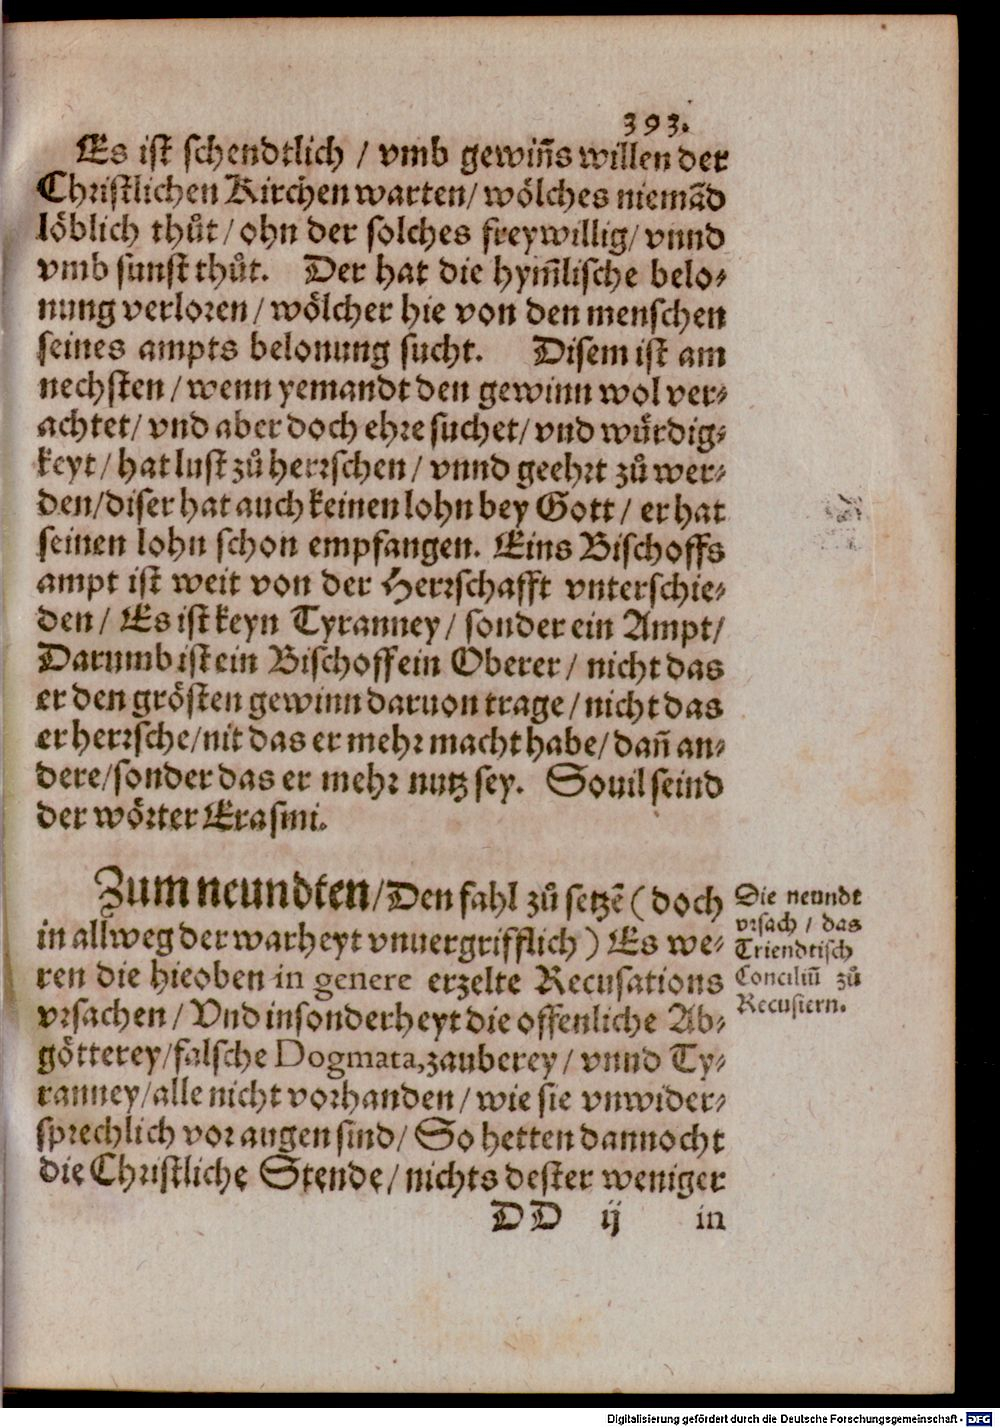 393.
Es ist schendtlich / vmb gewiñs willen der
Christlichen Kirchen warten / wölches niemãd
löblich thůt / ohn der solches freywillig / vnnd
vmb sunst thůt. Der hat die hym̃lische belo-
nung verloren / wölcher hie von den menschen
seines ampts belonung sucht. Disem ist am
nechsten / wenn yemandt den gewinn wol ver-
achtet / vnd aber doch ehre suchet / vnd würdig-
keyt / hat lust zů herrschen / vnnd geehrt zů wer-
den / diser hat auch keinen lohn bey Gott / er hat
seinen lohn schon empfangen. Eins Bischoffs
ampt ist weit von der Herrschafft vnterschie-
den / Es ist keyn Tyranney / sonder ein Ampt /
Darumb ist ein Bischoff ein Oberer / nicht das
er den grösten gewinn daruon trage / nicht das
er herrsche / nit das er mehr macht habe / dañ an-
dere / sonder das er mehr nutz sey. Souil seind
der wörter Erasmi.
Zum neundten / Den fahl zů setzẽ (doch
in allweg der warheyt vnuergrifflich) Es we-
ren die hieoben in genere erzelte Recusations
vrsachen / Vnd insonderheyt die offenliche Ab-
götterey / falsche Dogmata, zauberey / vnnd Ty-
ranney / alle nicht vorhanden / wie sie vnwider-
sprechlich vor augen sind / So hetten dannocht
die Christliche Stende / nichts dester weniger
DD ij in
Die neundt
vrsach / das
Triendtisch
Conciliũ zů
Recusiern.
Digitalisierung gefördert durch die Deutsche Forschungsgemeinschaft - DFG